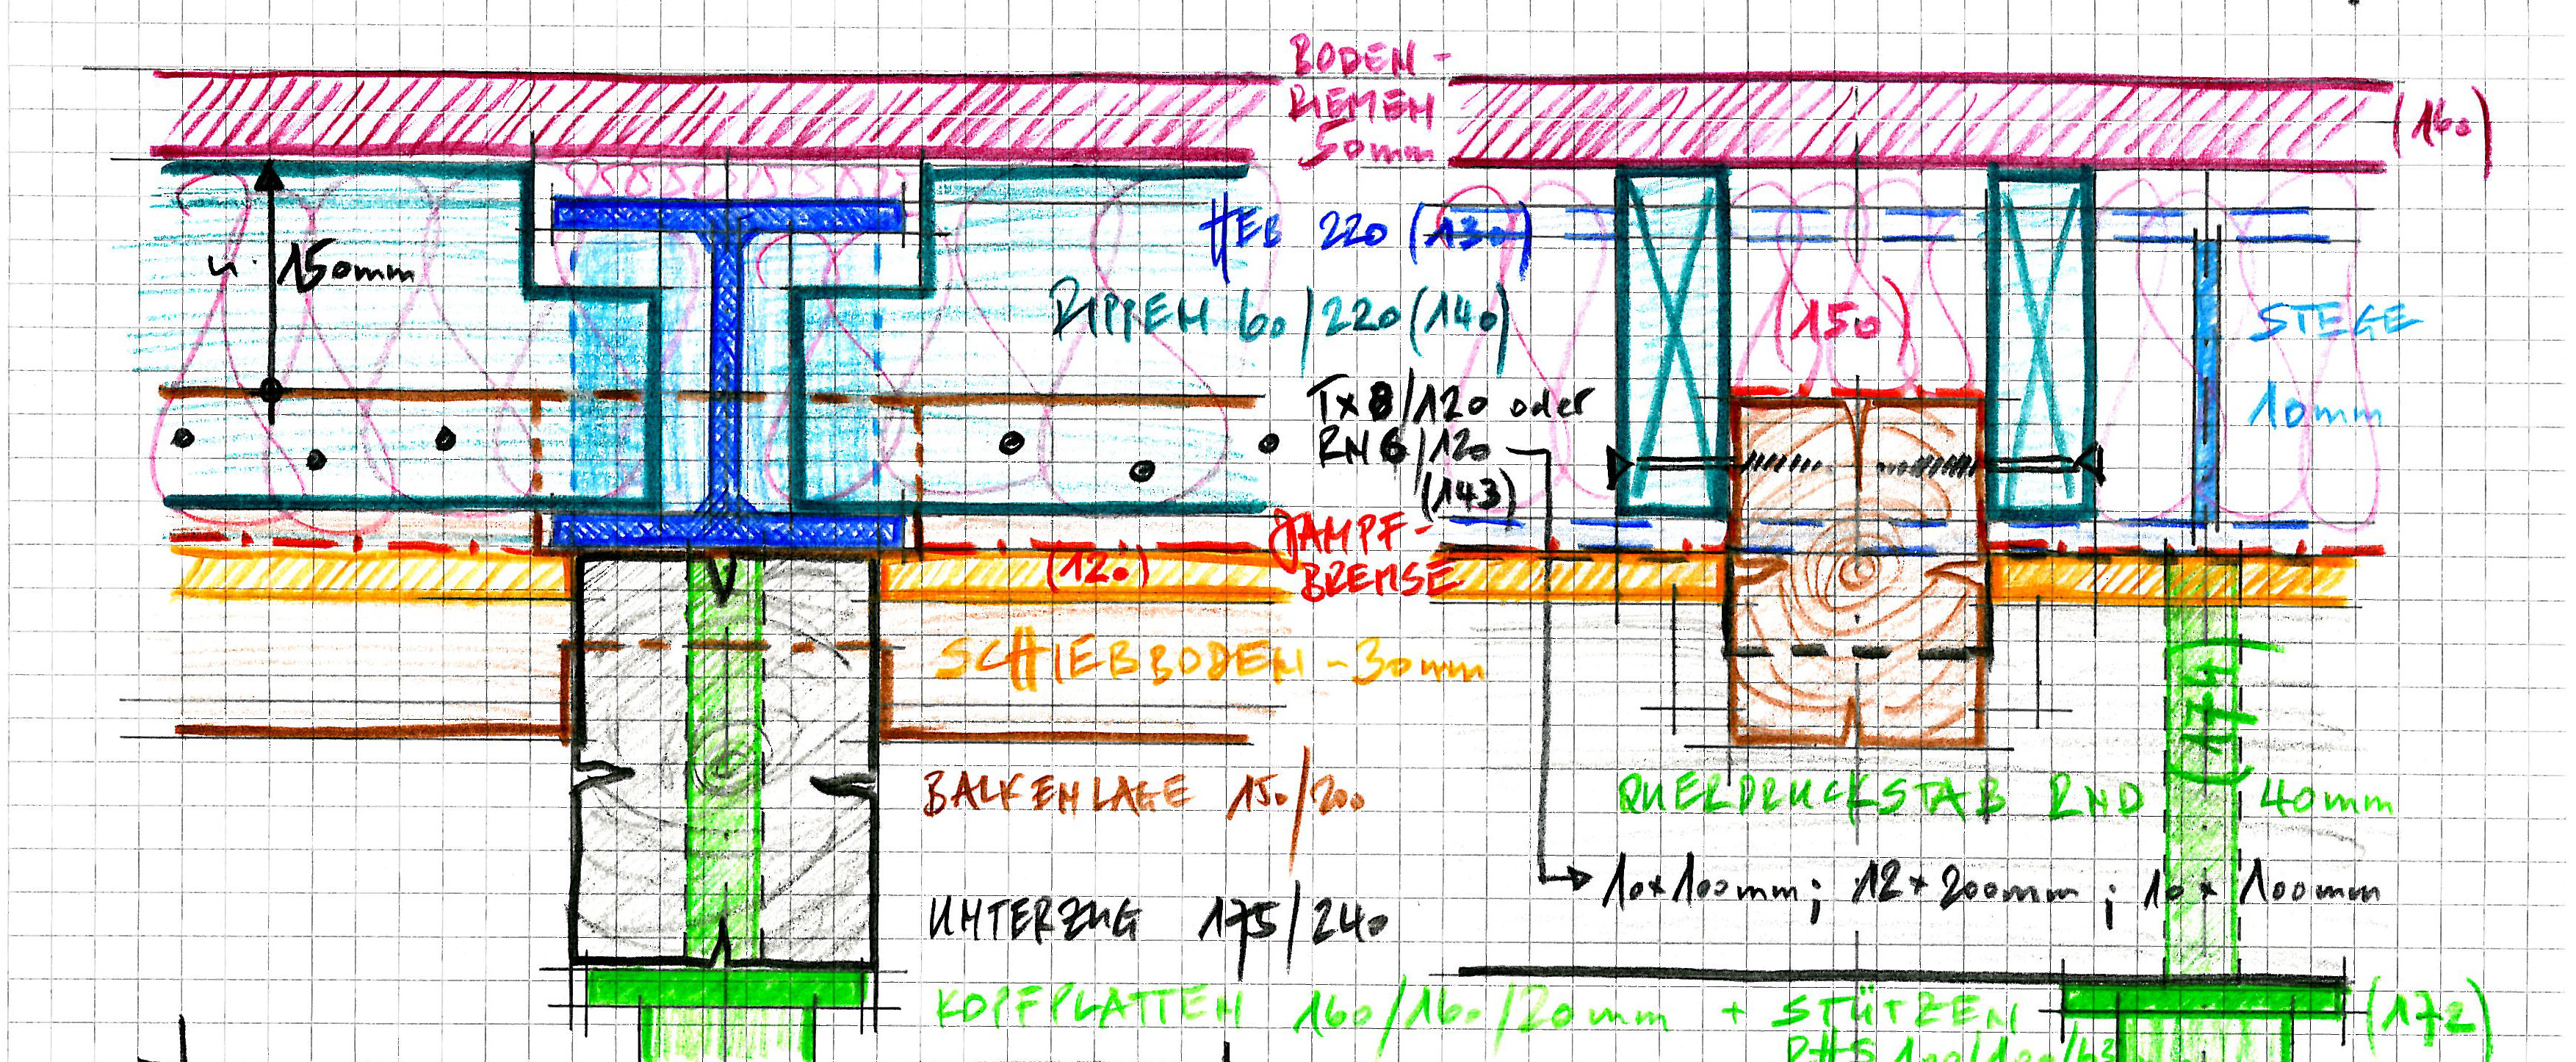 BODEN-
RIEMEN
50mm
(160)
HEB 220 (130)
ü. 150mm
RIPPEN 60/220 (140)
(150)
STEGE
10mm
Tx 8/120 oder
RN 6/120
(143)
DAMPF-
BREMSE
(120)
SCHIEBBODEN - 30mm
(174)
BALKENLAGE 150/200
QUERDRUCKSTAB RND 40mm
10x100mm; 12x200mm; 10x100mm
UNTERZUG 175/240
KOPFPLATTEN 160/160/20mm + STÜTZEN
(172)
RHS 100/100/63